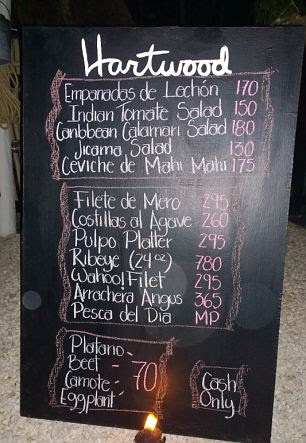 Hartwood
Empanadas de Lechón 170
Indian Tomate Salad 150
Caribbean Calamari Salad 180
Jicama Salad 130
Ceviche de Mahi Mahi 175
Filete de Mero 295
Costillas al Agave 260
Pulpo Platter 295
Ribeye (24oz) 780
Wahoo! Filet 295
Arrachera Angus 365
Pesca del Dia MP
Platano
Beet
Camote 70
Eggplant
Cash
Only